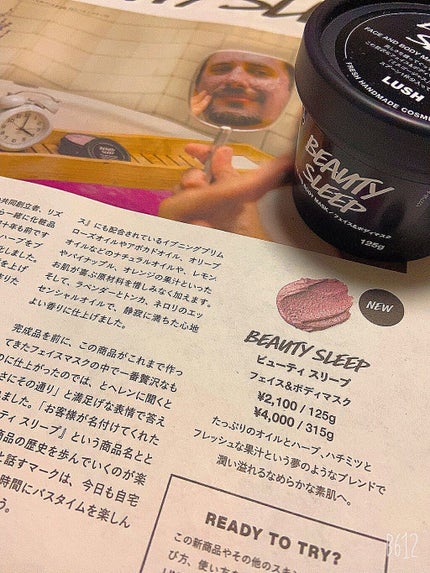 FACE AND BODY MA
LUSH
FRESH HANDMADE COSME
BEAUTY
SLEEP
フェイス&ボディマスク
125g
共同創立者、リズ
ら一緒に化粧品
ス』にも配合されているイブニングプリム
ローズオイルやアボカドオイル、オリーブ
オイルなどのナチュラルオイルや、レモン
やパイナップル、オレンジの果汁といった
お肌が喜ぶ原材料を惜しみなく加えます。
そして、ラベンダーとトンカ、ネロリのエッ
センシャルオイルで、静寂に満ちた心地
よい香りに仕上げました。
完成品を前に、この商品がこれまで作っ
てきたフェイスマスクの中で一番贅沢なも
のに仕上がったのでは、とヘレンに聞くと
さにその通り」と満足げな表情で答え
ました。「お客様が名付けてくれた
ティ スリープ』という商品名とと
商品の歴史を歩んでいくのが楽
と話すマークは、今日も自宅
時間にバスタイムを楽しん
う。
NEW
BEAUTY SLEEP
ビューティ スリープ
フェイス&ボディマスク
¥2,100 / 125g
¥4,000 / 315g
たっぷりのオイルとハーブ、ハチミツと
フレッシュな果汁という夢のようなブレンドで
潤い溢れるなめらかな素肌へ。
READY TO TRY?
この新商品やその他のスキン
び方、使い方な
B612